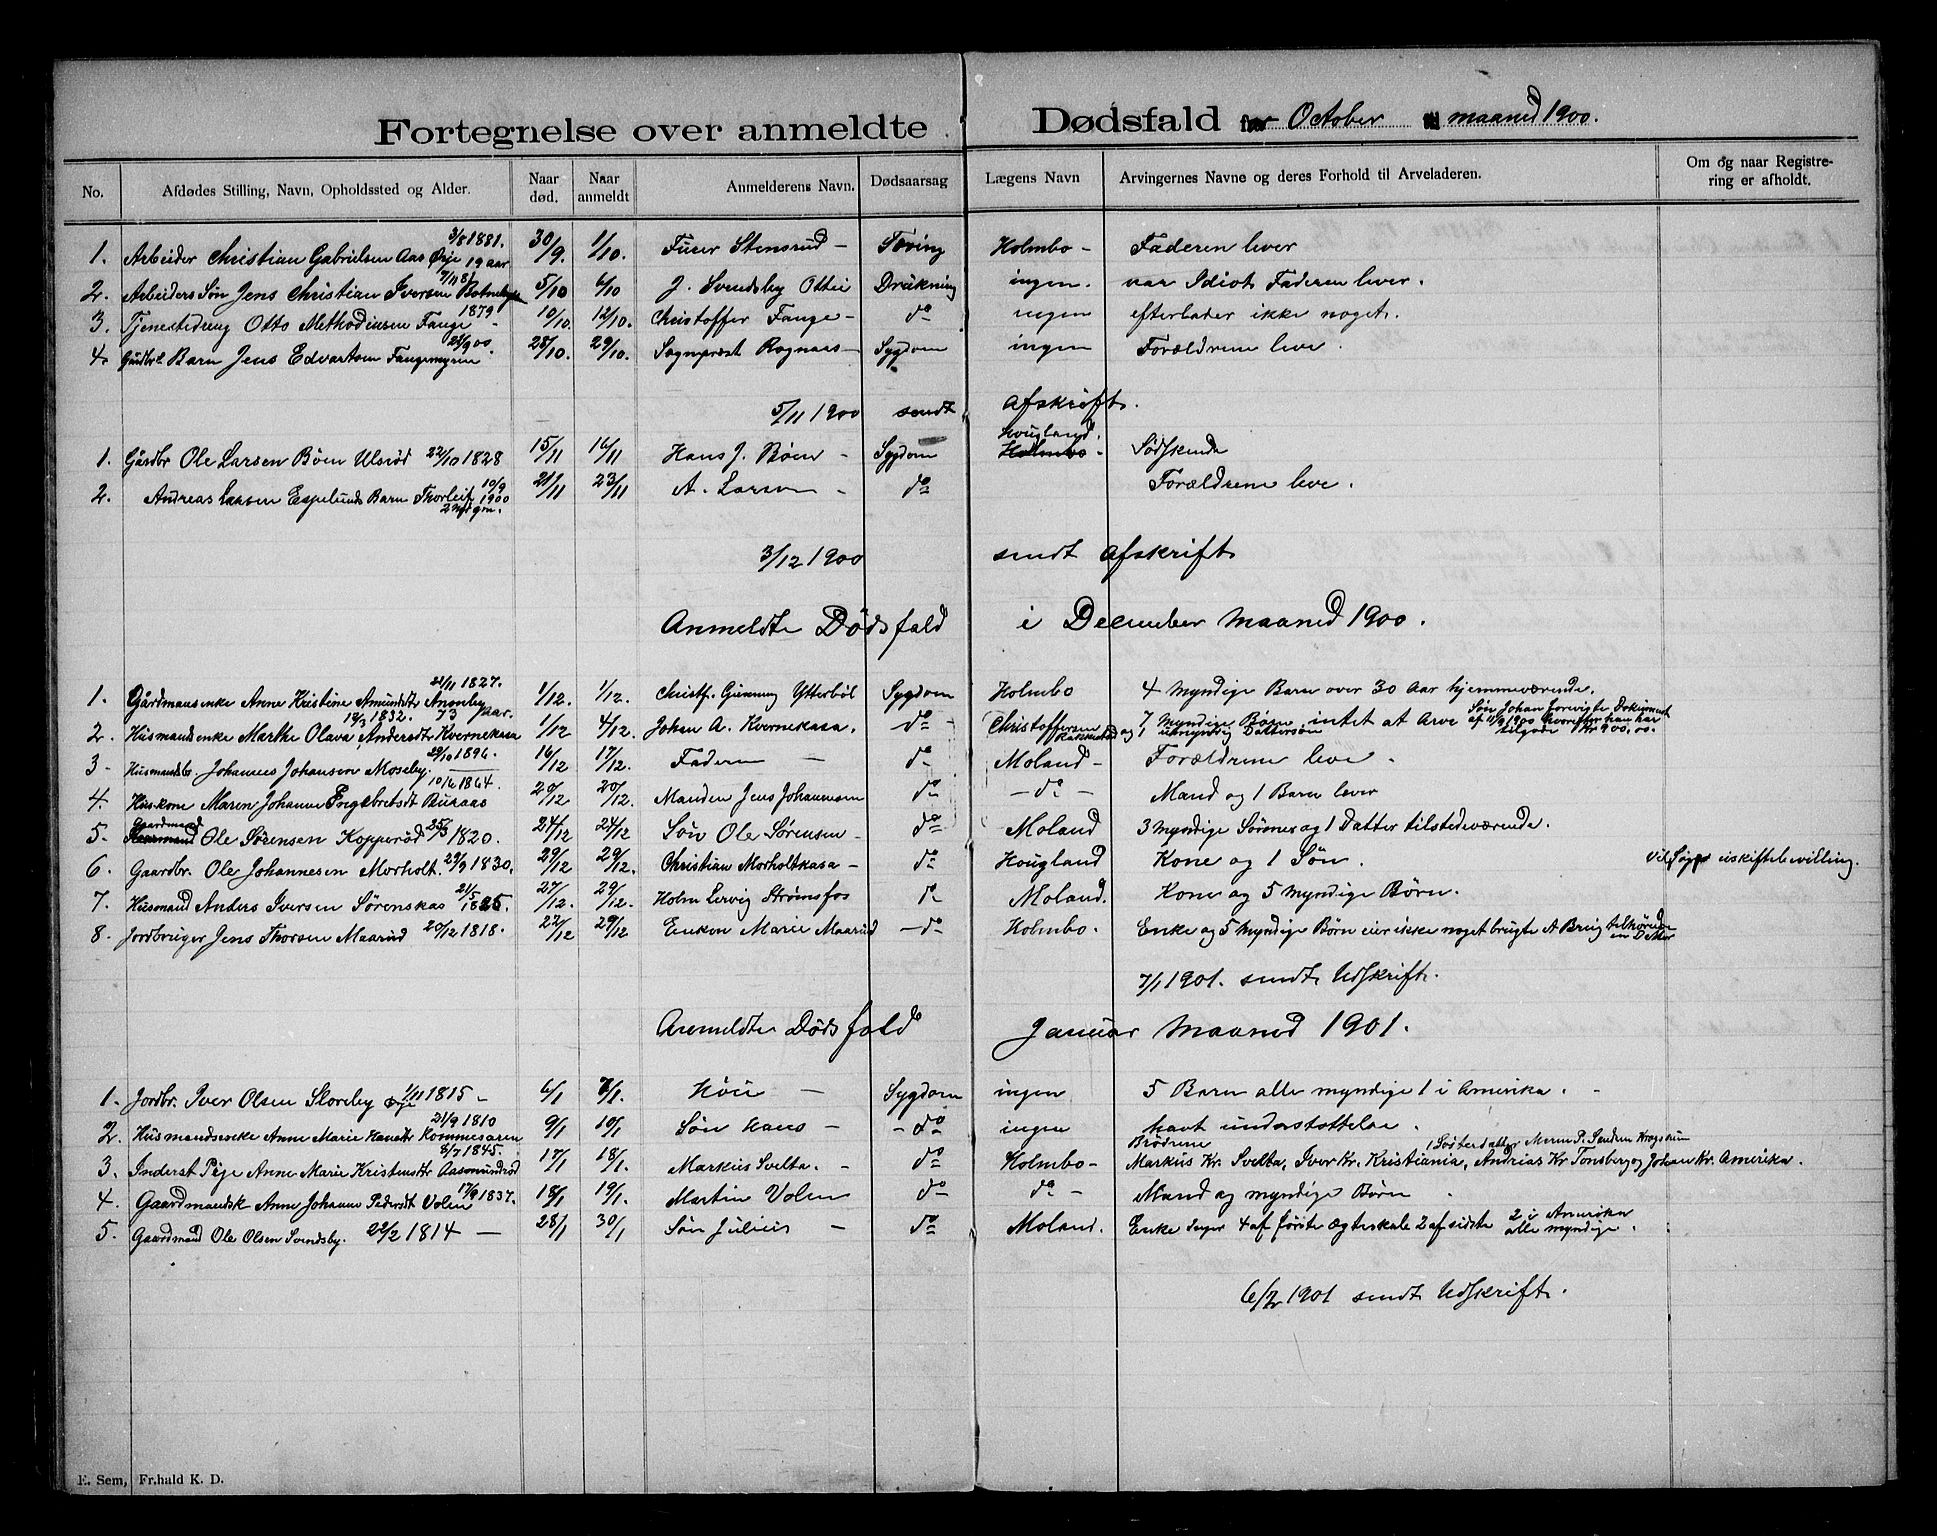 Fortegnelse over anmeldte Dødsfald for October maaned 1900.
No. Afdødes Stilling, Navn, Opholdssted og Alder. Naar død. Naar anmeldt Anmelderens Navn. Dødsaarsag Lægens Navn Arvingernes Navne og deres Forhold til Arveladeren. Om og naar Registrering er afholdt.
1. Arbeider Christian Gabrielsen Aas Ørje 3/8 1881. 19 aar 30/9. 1/10. Furer Stensrud - Tæring Holmbo - Faderen lever
2. Arbeiders Søn Jens Christian Iversen 5/10 6/10 J. Svendsby Ottei Drukning ingen. var Idiot Faderen lever.
3. Tjenestedreng Otto Methodiusen Fange 1879 - 10/10. 12/10. Christoffer Fange - do ingen efterlader ikke noget.
4. Gudbr. Barn Jens Edvartsen Fangemyren 28/10. 29/10. Sognprest Rognaas - Sygdom ingen Forældrene leve.
5/11 1900 sendt Afskrift.
1. Gårdbr Ole Larsen Bøen Ulsrød 22/10 1828 15/11 16/11 Hans J. Bøen - Sygdom Hougland. Holmbo - Sødskende
2. Andreas Larsen Espelunds Barn Thorleif 10/9 1900 21/11 23/11 A. Larsen - do Forældrene leve.
3/12 1900 sendt Afskrift
Anmeldte Dødsfald i December Maaned 1900.
1. Gårdmansenke Anne Kristine Amundsdtr 21/11 1827. 73 aar. 1/12. 1/12. Christf. Gunneng Ytterbøl Sygdom Holmbo 4 Myndige Barn over 30 Aar hjemmeværende.
2. Husmandsenke Marthe Olava Andersdtr Kvernekasa 19/3 1832. 1/12 4/12. Johan A. Kvernekasa. do - Christoffersen Rakkestad 7 Myndige Børn, intet at Arve og 1 umyndig Dattersøn Søn Johan forevigte Dokument af 11/9 1900 hvorefter han har tilgode Kr 900,00.
3 - Husmandsbr. Johannes Johansen Moseby. 29/10 1896. 16/12 17/12. Faderen - do Moland - Forældrene leve.
4. Huskone Maren Johanne Engebretsdt Buraas 10/6 1864. 20/12 20/12. Manden Jens Johannesen do - do - Mand og 1 Barn lever
5. Gaardmand Ole Sørensen Kopperød 25/3 1820. 24/12 24/12 Søn Ole Sørensen - do Moland 3 Myndige Sønner og 1 Datter tilstedeværende.
6. Gaardbr. Ole Johannesen Morholt. 29/9 1830. 29/12 29/12. Christian Morholtkasa - do Hougland Kone og 1 Søn. Vil søge uskiftebevilling.
7. Husmand Anders Iversen Sørenskas 21/5 1825. 27/12. 29/12. Holm Lervig Strømsfos do Moland. Kone og 5 Myndige Børn.
8. Jordbruger Jens Thorsen Maarud 20/12 1818. 22/12 29/12 Enken Marie Maarud - do Holmbo. Enke og 5 Myndige Børn eier ikke noget brugte et Brug tilhørende en Datter
7/1 1901. sendt Udskrift.
Anmeldte Dødsfald Januar Maaned 1901.
1. Jordbr. Iver Olsen Sloreby Ørje 1/11 1815 - 6/1 7/1. Høie - Sygdom ingen 5 Barn alle myndige 1 i Amerika.
2. Husmandsenke Anne Marie Hansdtr Kommesaren 21/9 1810 9/1 10/1 Søn Hans - - do ingen havt understøttelse.
3. Inderst Pige Anne Marie Kristensdtr Aasmundrød 8/7 1845. 17/1 18/1. Markus Svelta. - do Holmbo - Brødrene Markus Kr. Svelta, Iver Kr. Kristiania, Andrias Kr Tønsberg og Johan Kr. Amerika. 1 Søsterdatter
4. Gaardmandsk Anne Johanne Pedersdt Volen 17/9 1837. 18/1 19/1. Martin Volen do do - Mand og myndige Børn
5. Gaardmand Ole Olsen Svendsby. 22/2 1814 - 28/1 30/1 Søn Julius - do Moland. Enke 4 af første Ægteskab 2 af sidste 2 i Amerika alle myndige.
6/2 1901 sendt Udskrift.
E. Sem, Fr.hald K. D.